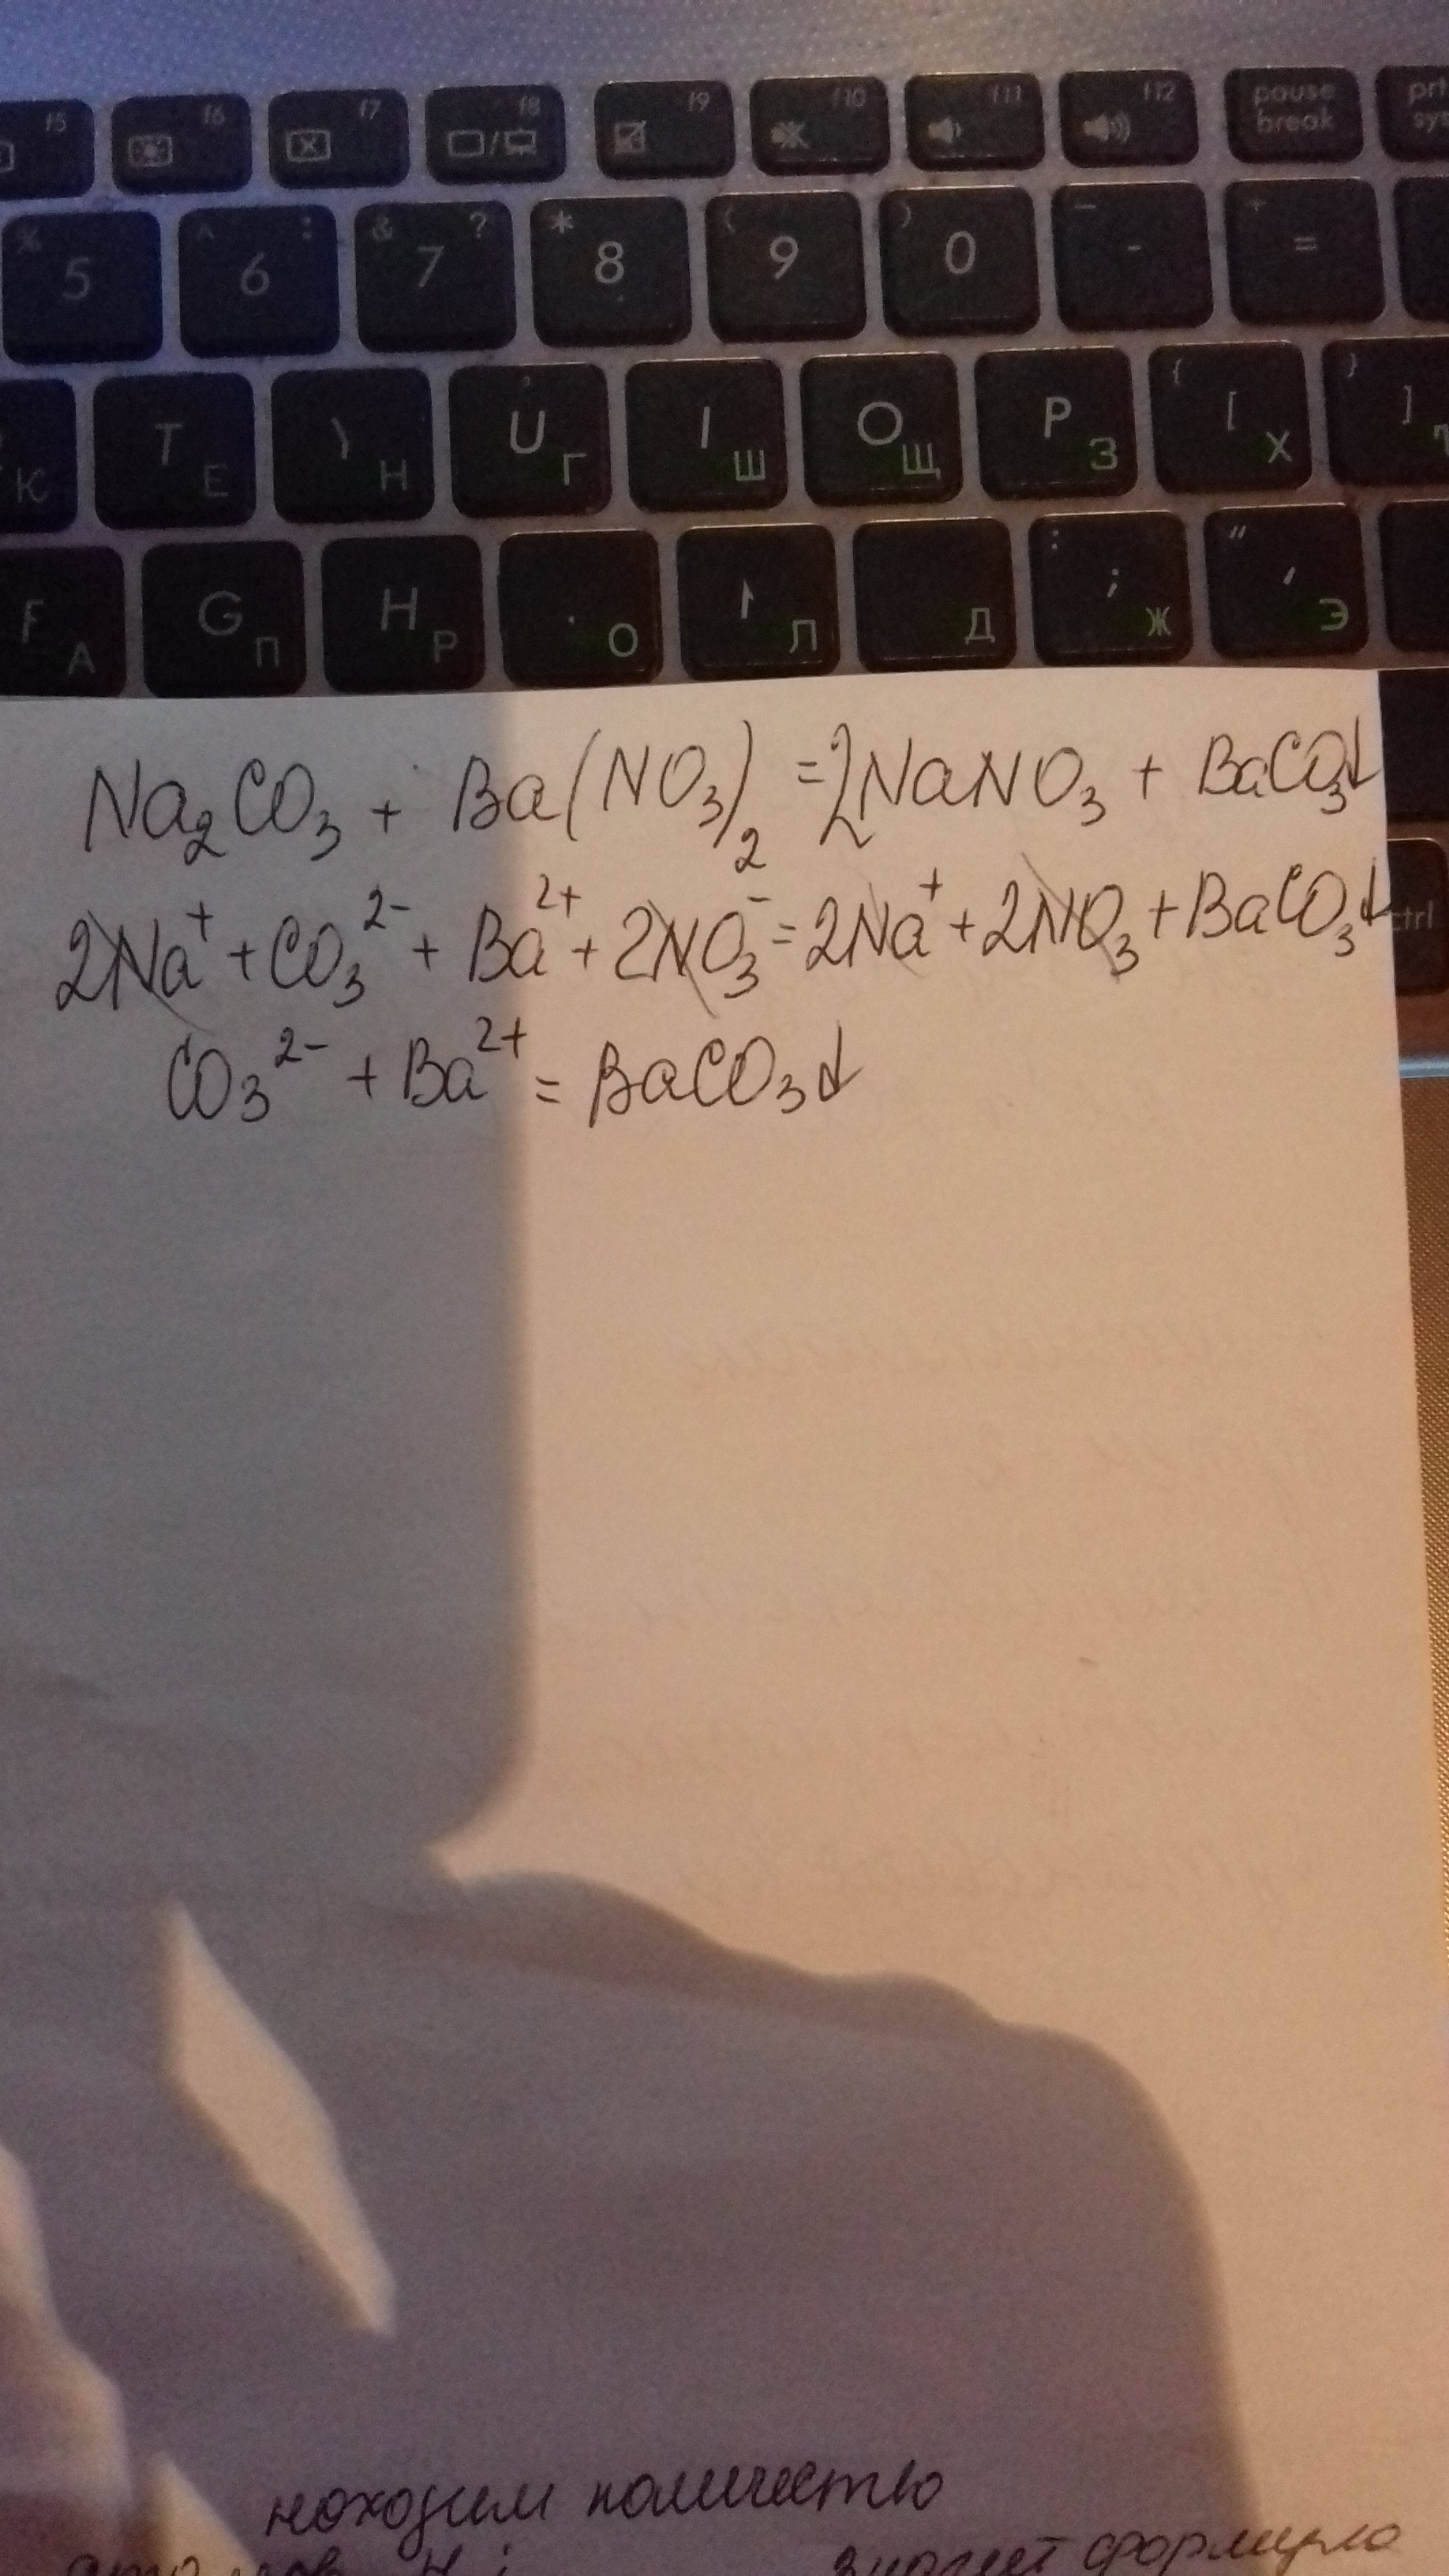 f5 f6 f7 f8 f9 f10 f11 f12 pause break
% 5 ^ 6 : & 7 ? * 8 ( 9 ) 0 _ - + =
К T Е Н U Г I Ш O Щ P З { [ Х } ]
F А G П H Р О Л Д : ; Ж " ' Э
ctrl
Na₂CO₃ + Ba(NO₃)₂ = 2NaNO₃ + BaCO₃↓
2Na⁺ + CO₃²⁻ + Ba²⁺ + 2NO₃⁻ = 2Na⁺ + 2NO₃ + BaCO₃↓
CO₃²⁻ + Ba²⁺ = BaCO₃↓
находим количество
значит формула